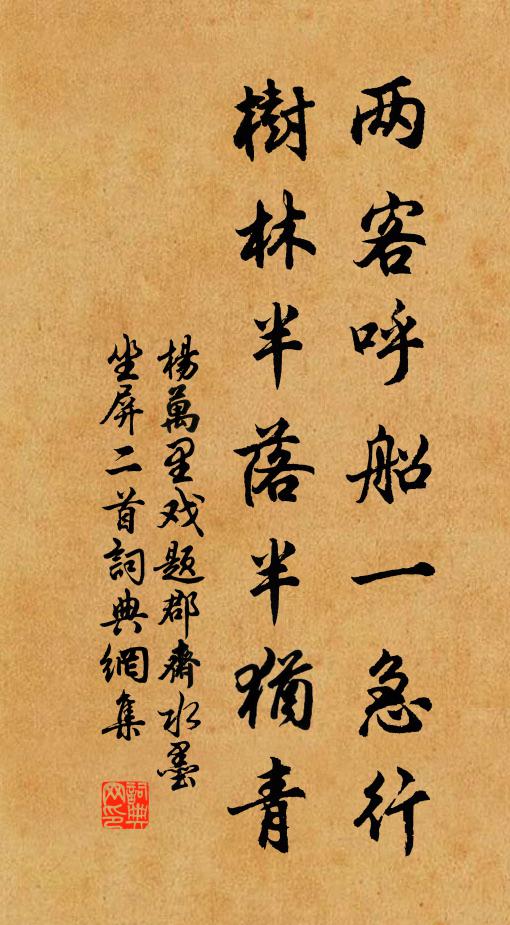 两客呼船一急行
樹林半落半猶青
楊萬里戏题郡齋水墨
坐屏二首詞典網集
詞典
网印